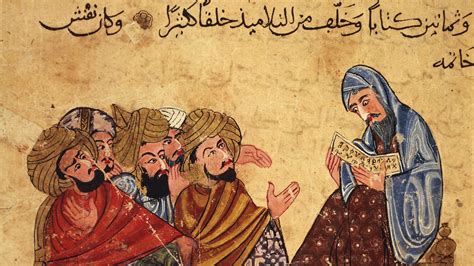 وثمانين كتاباً وخلّف من التلاميذ خلقاً كثيرًا وكان نقش
خاتمه